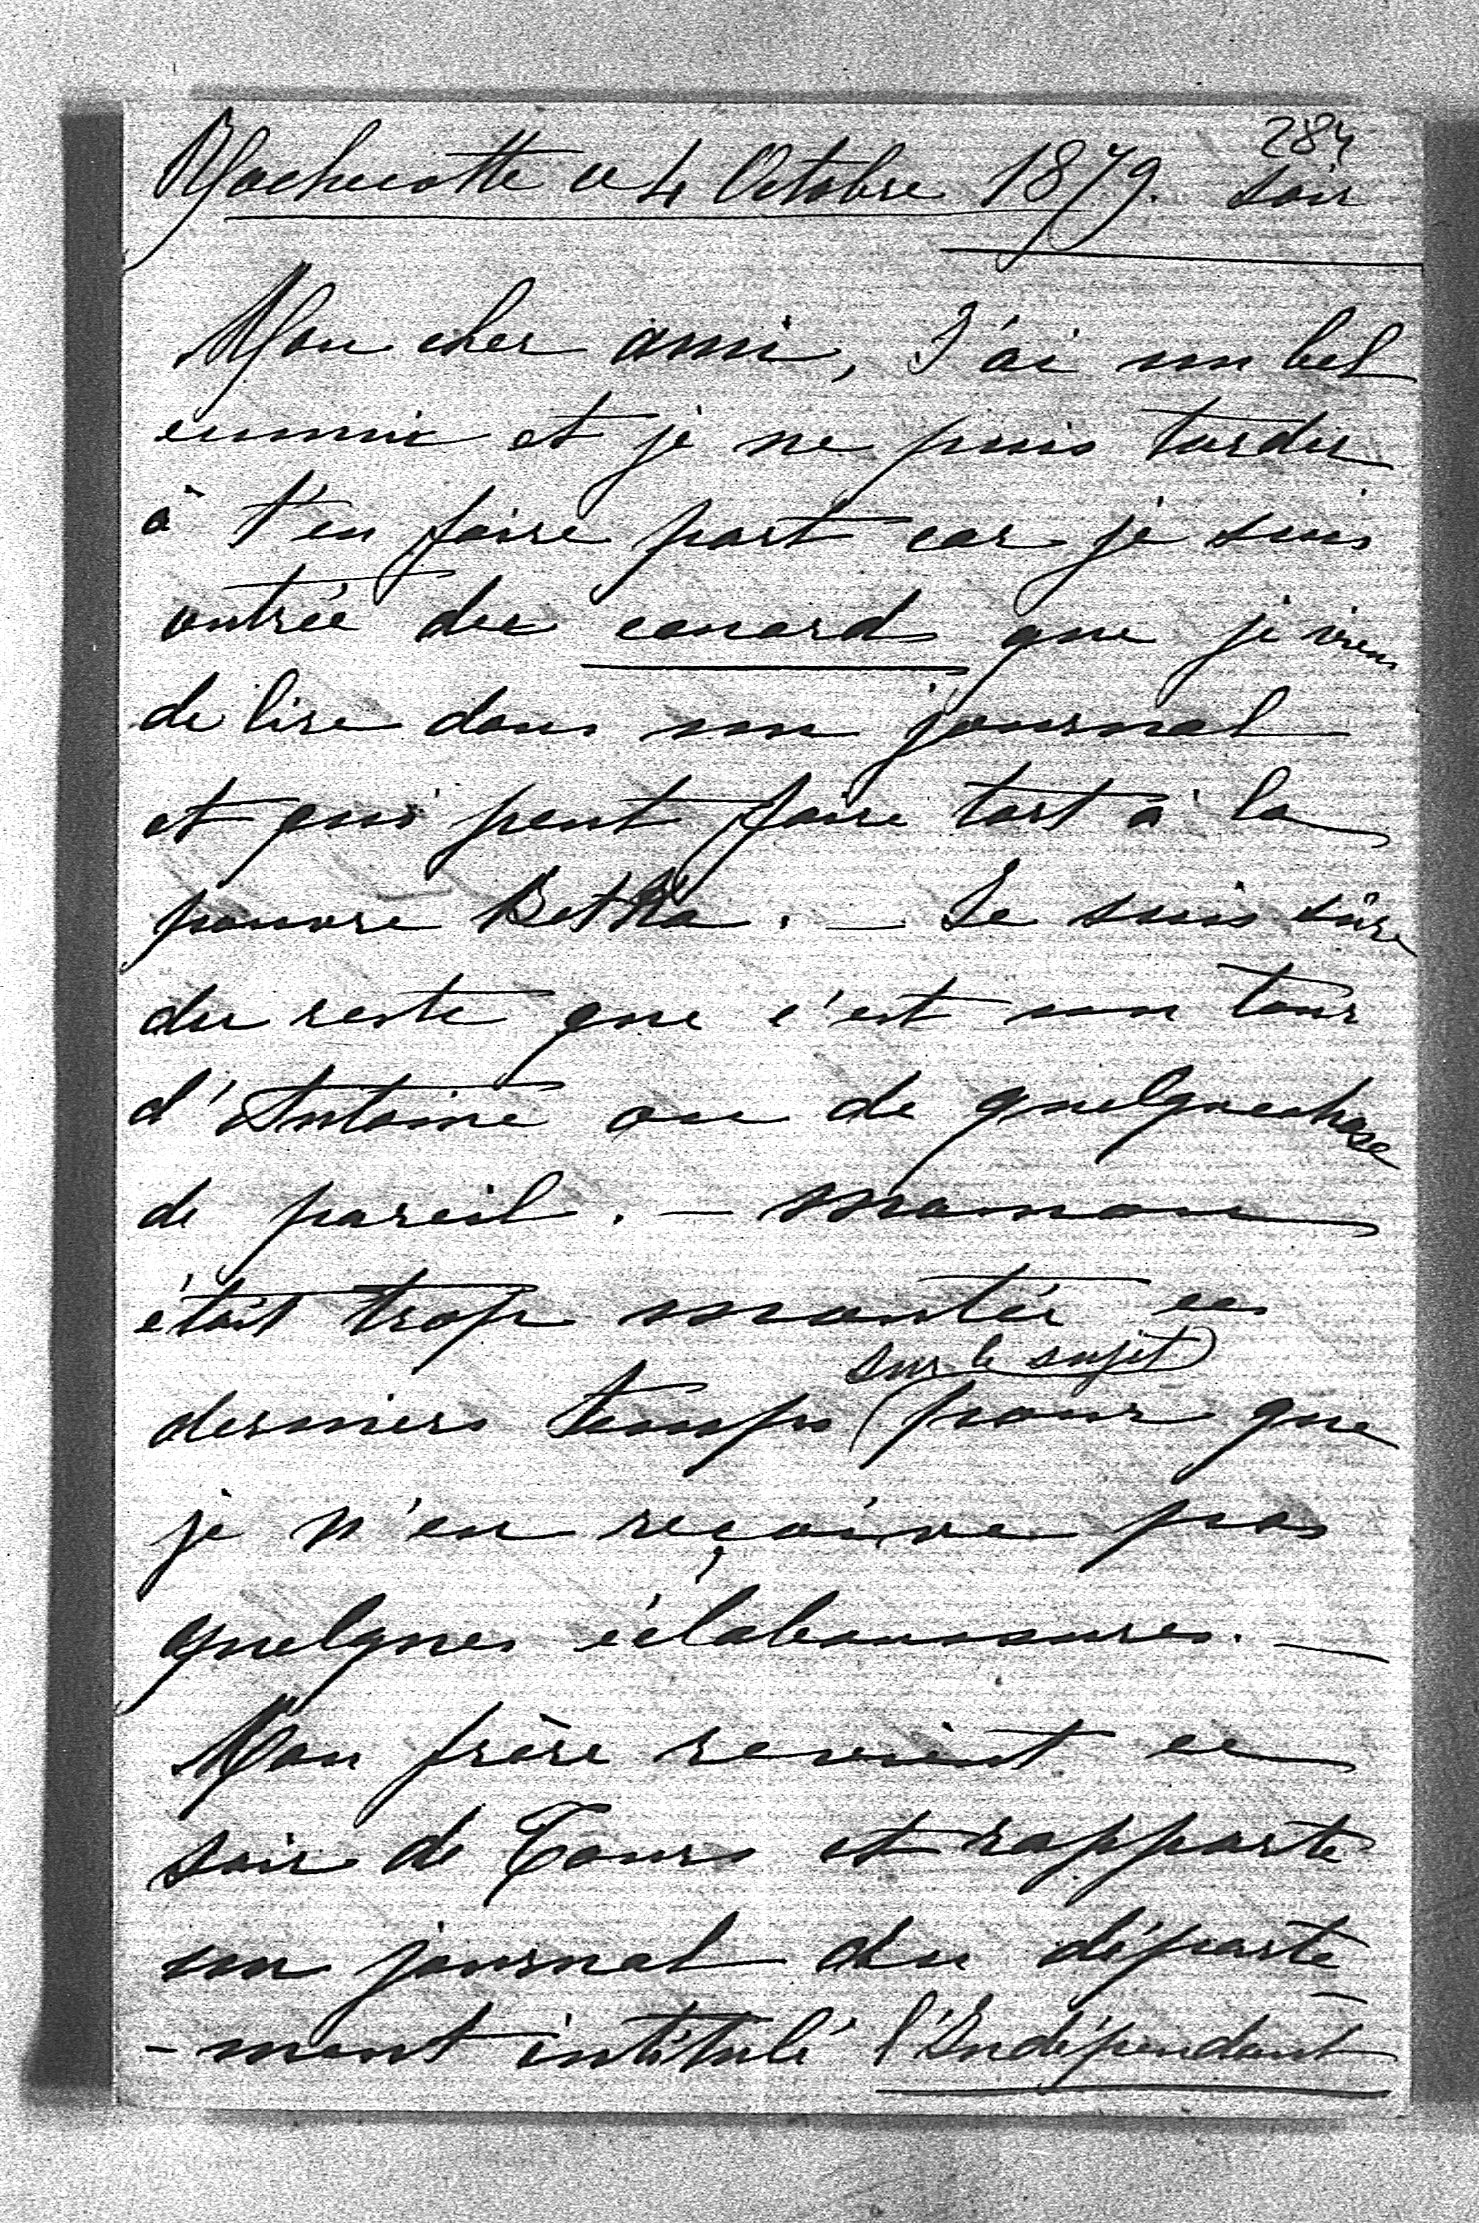 284
Rochecotte ce 4 Octobre 1879. soir
Mon cher ami, J'ai un bel
ennui et je ne puis tarder
à t'en faire part car je suis
outrée du canard que je viens
de lire dans un journal
et qui peut faire tort à la
pauvre Betka. — Je suis sûre
du reste que c'est un tour
d'Antoine ou de quelquechose
de pareil. — maman
était trop montée ces
sur le sujet
derniers temps pour que
je n'en reçoive pas
quelques éclaboussures. —
Mon frère revient ce
soir de Tours et rapporte
un journal du départe-
-ment intitulé l'Indépendant